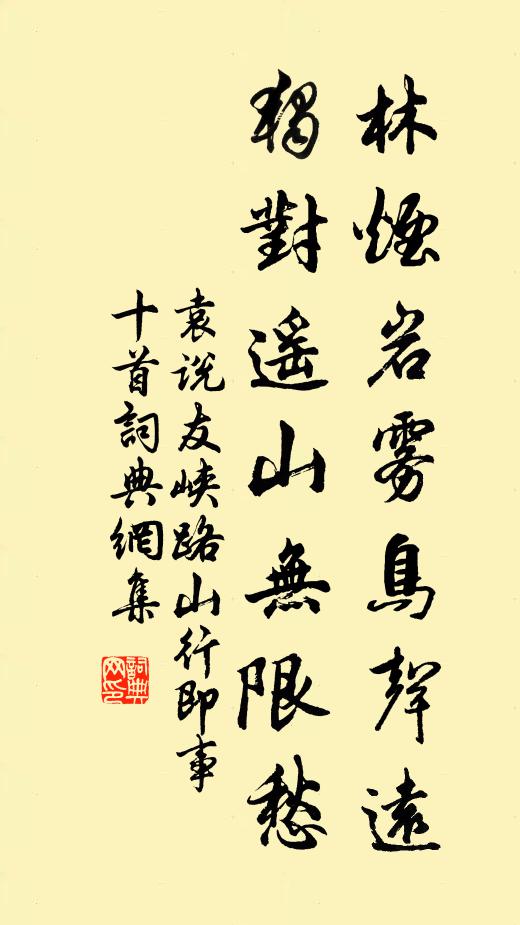 林煙岩雾鳥聲遠
獨對遥山無限愁
袁说友峡路山行即事
十首詞典網集
詞典
网印